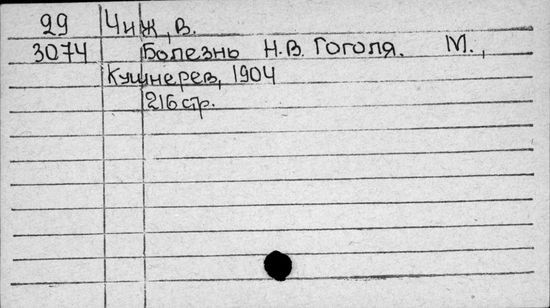 29 Чиж, В.
3074 Болезнь Н.В. Гоголя. М.,
Кушнерев, 1904
216 стр.